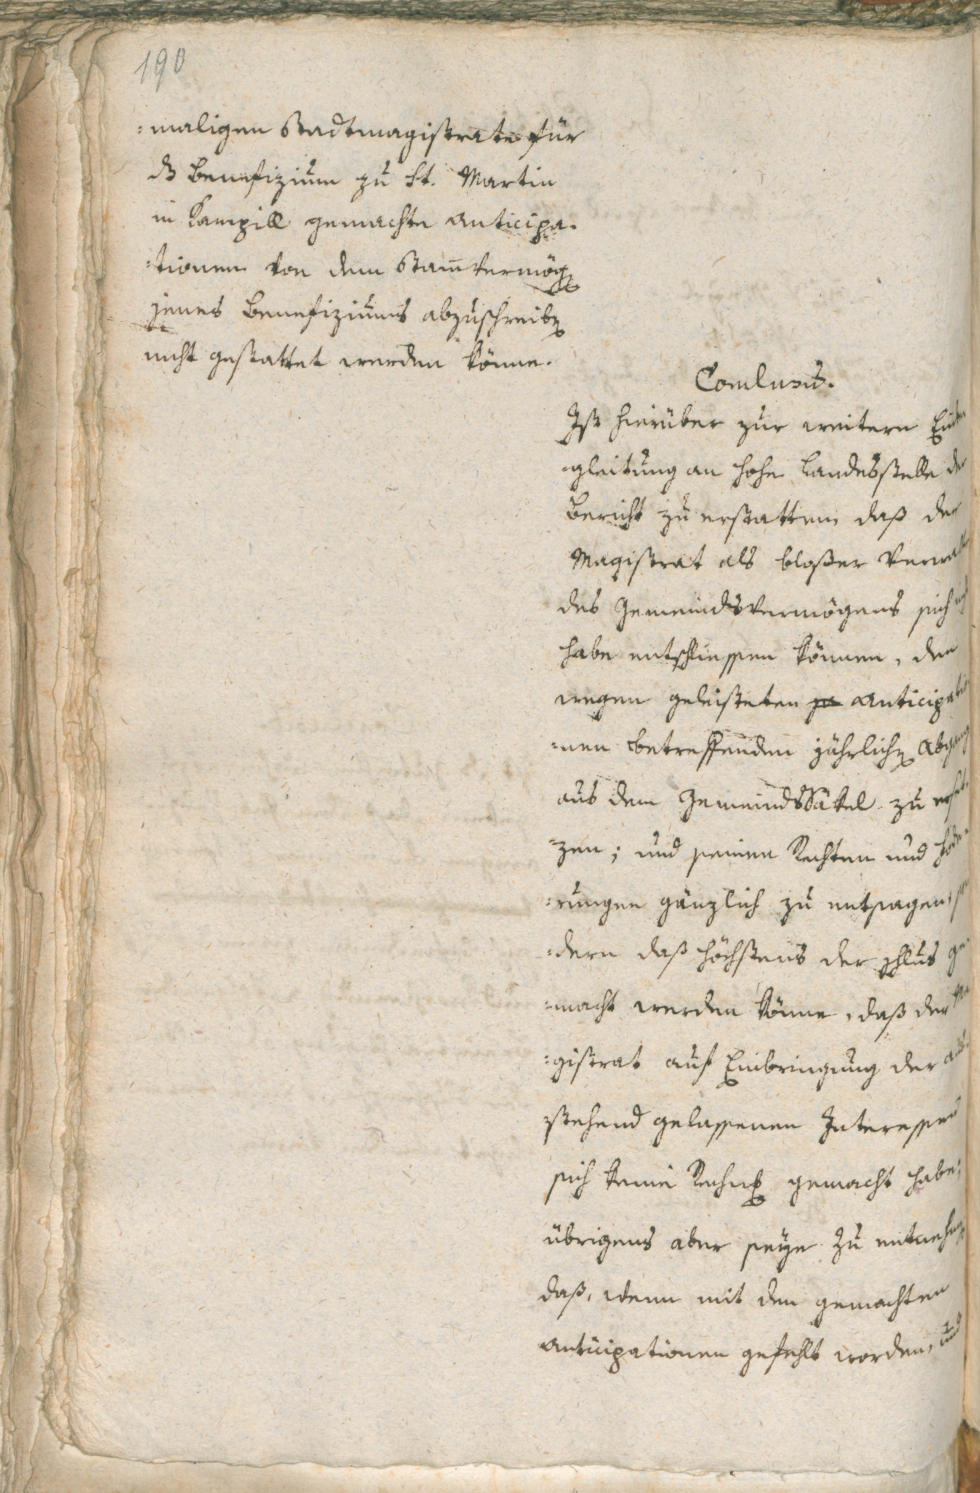 190
:maligen Stadtmagistrate für
ds Benefizium zu St. Martin
in Kampill gemachte Anticipa-
:tionen von dem Stamvermög
jenes Benefiziums abzuschreib
nicht gestattet werden könne.
Conclusum.
Ist hierüber zur weitern Ein
:gleitung an hohe Landesstelle der
Bericht zu erstatten, daß der
Magistrat als bloßer Verwal
des Gemeindsvermögens sich
habe entschliessen können, den
wegen geleisteten Anticipatio
:nen betreffenden jährlich Abgang
aus dem GemeindsSäkel zu erset
:zen; und seinen Rechten und Fode
:rungen gänzlich zu entsagen, son
:dern daß höchstens der Schlus ge
:macht werden könne, daß der Ma
:gistrat auf Einbringung der aus
stehend gelassenen Interessen
sich keine Rechnung gemacht habe;
übrigens aber seye zu entnehm
daß, wenn mit den gemachten
Anticipationen gefehlt worden, und